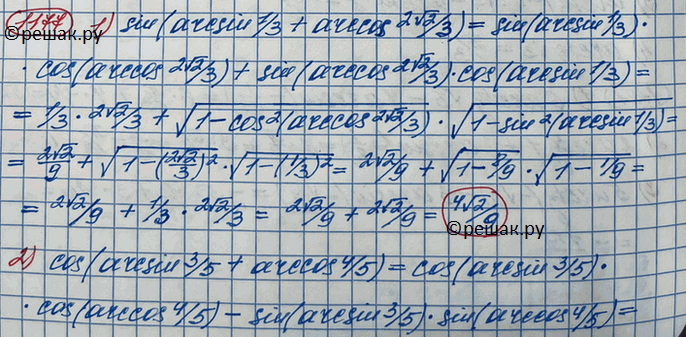 1177 1) sin(arcsin 1/3 + arccos 2√2/3) = sin(arcsin 1/3) ·
©reшак.ру
· cos(arccos 2√2/3) + sin(arccos 2√2/3) · cos(arcsin 1/3) =
= 1/3 · 2√2/3 + √(1-cos²(arccos 2√2/3)) · √(1-sin²(arcsin 1/3)) =
= 2√2/9 + √(1-(2√2/3)²) · √(1-(1/3)²) = 2√2/9 + √(1-8/9) · √(1-1/9) =
= 2√2/9 + 1/3 · 2√2/3 = 2√2/9 + 2√2/9 = 4√2/9
©reшак.ру
2) cos(arcsin 3/5 + arccos 4/5) = cos(arcsin 3/5) ·
· cos(arccos 4/5) - sin(arcsin 3/5) · sin(arccos 4/5) =